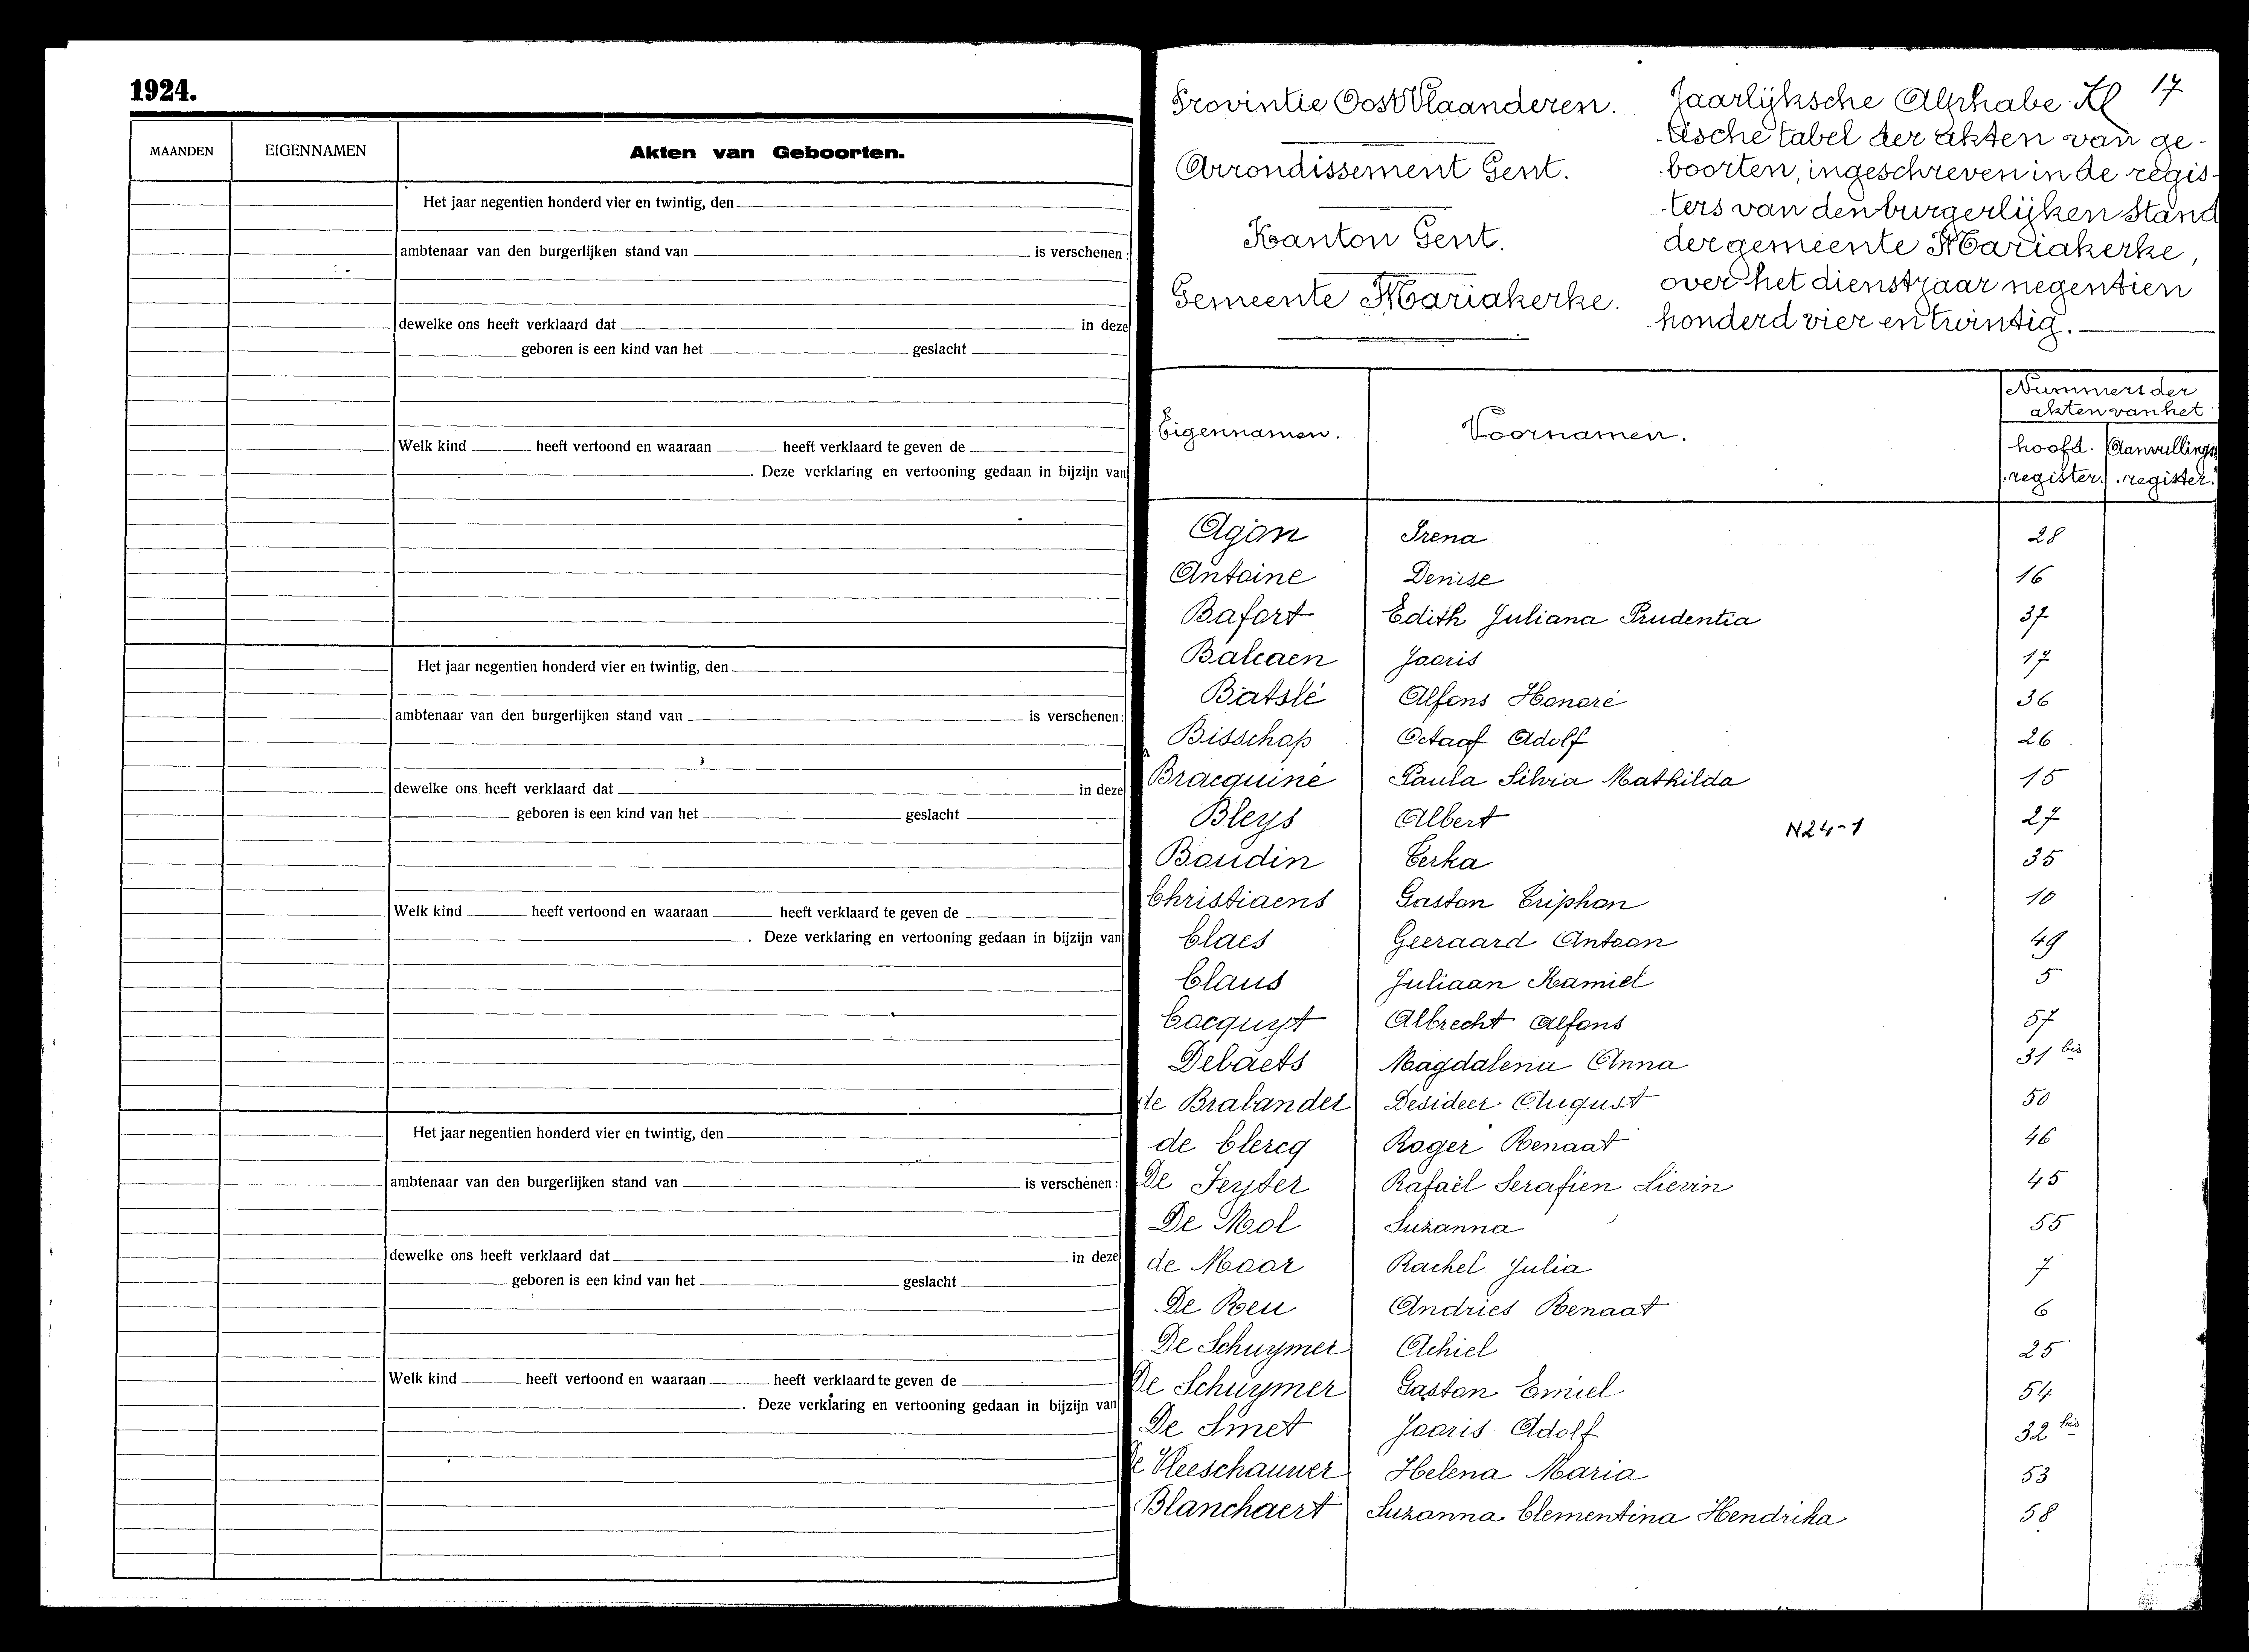 1924.
MAANDEN EIGENNAMEN Akten van Geboorten.
Het jaar negentien honderd vier en twintig, den
ambtenaar van den burgerlijken stand van is verschenen:
dewelke ons heeft verklaard dat in deze
geboren is een kind van het geslacht
Welk kind heeft vertoond en waaraan heeft verklaard te geven de
. Deze verklaring en vertooning gedaan in bijzijn van
Het jaar negentien honderd vier en twintig, den
ambtenaar van den burgerlijken stand van is verschenen:
dewelke ons heeft verklaard dat in deze
geboren is een kind van het geslacht
Welk kind heeft vertoond en waaraan heeft verklaard te geven de
. Deze verklaring en vertooning gedaan in bijzijn van
Het jaar negentien honderd vier en twintig, den
ambtenaar van den burgerlijken stand van is verschenen:
dewelke ons heeft verklaard dat in deze
geboren is een kind van het geslacht
Welk kind heeft vertoond en waaraan heeft verklaard te geven de
. Deze verklaring en vertooning gedaan in bijzijn van
17
Provintie Oost Vlaanderen.
Arrondissement Gent.
Kanton Gent.
Gemeente Mariakerke.
Jaarlijksche Alphabe-
tische tabel der akten van ge-
boorten, ingeschreven in de regis-
ters van den burgerlijken stand
der gemeente Mariakerke,
over het dienstjaar negentien
honderd vier en twintig.
Eigennamen. Voornamen. Nummers der
akten van het
hoofd- Aanvullings
register. register.
Agon Irena 28
Antoine Denise 16
Bafort Edith Juliana Prudentia 37
Balcaen Jooris 17
Batslé Alfons Honoré 36
Bisschop Octaaf Adolf 26
Bracquiné Paula Silvia Mathilda 15
Bleys Albert N24-1 27
Boudin Cerka 35
Christiaens Gaston Triphon 10
Claes Geeraard Antoon 49
Claus Juliaan Kamiel 5
Cocquyt Albrecht Alfons 57
Debaets Magdalena Anna 31 bis
de Brabander Desideer August 50
de Clercq Roger Renaat 46
De Feyter Rafaël Serafien Lievin 45
De Mol Suzanna 55
de Moor Rachel Julia 7
De Reu Andries Renaat 6
De Schuymer Achiel 25
De Schuymer Gaston Emiel 54
De Smet Jooris Adolf 32 bis
De Vleeschauwer Helena Maria 53
Blanchaert Suzanna Clementina Hendrika 58